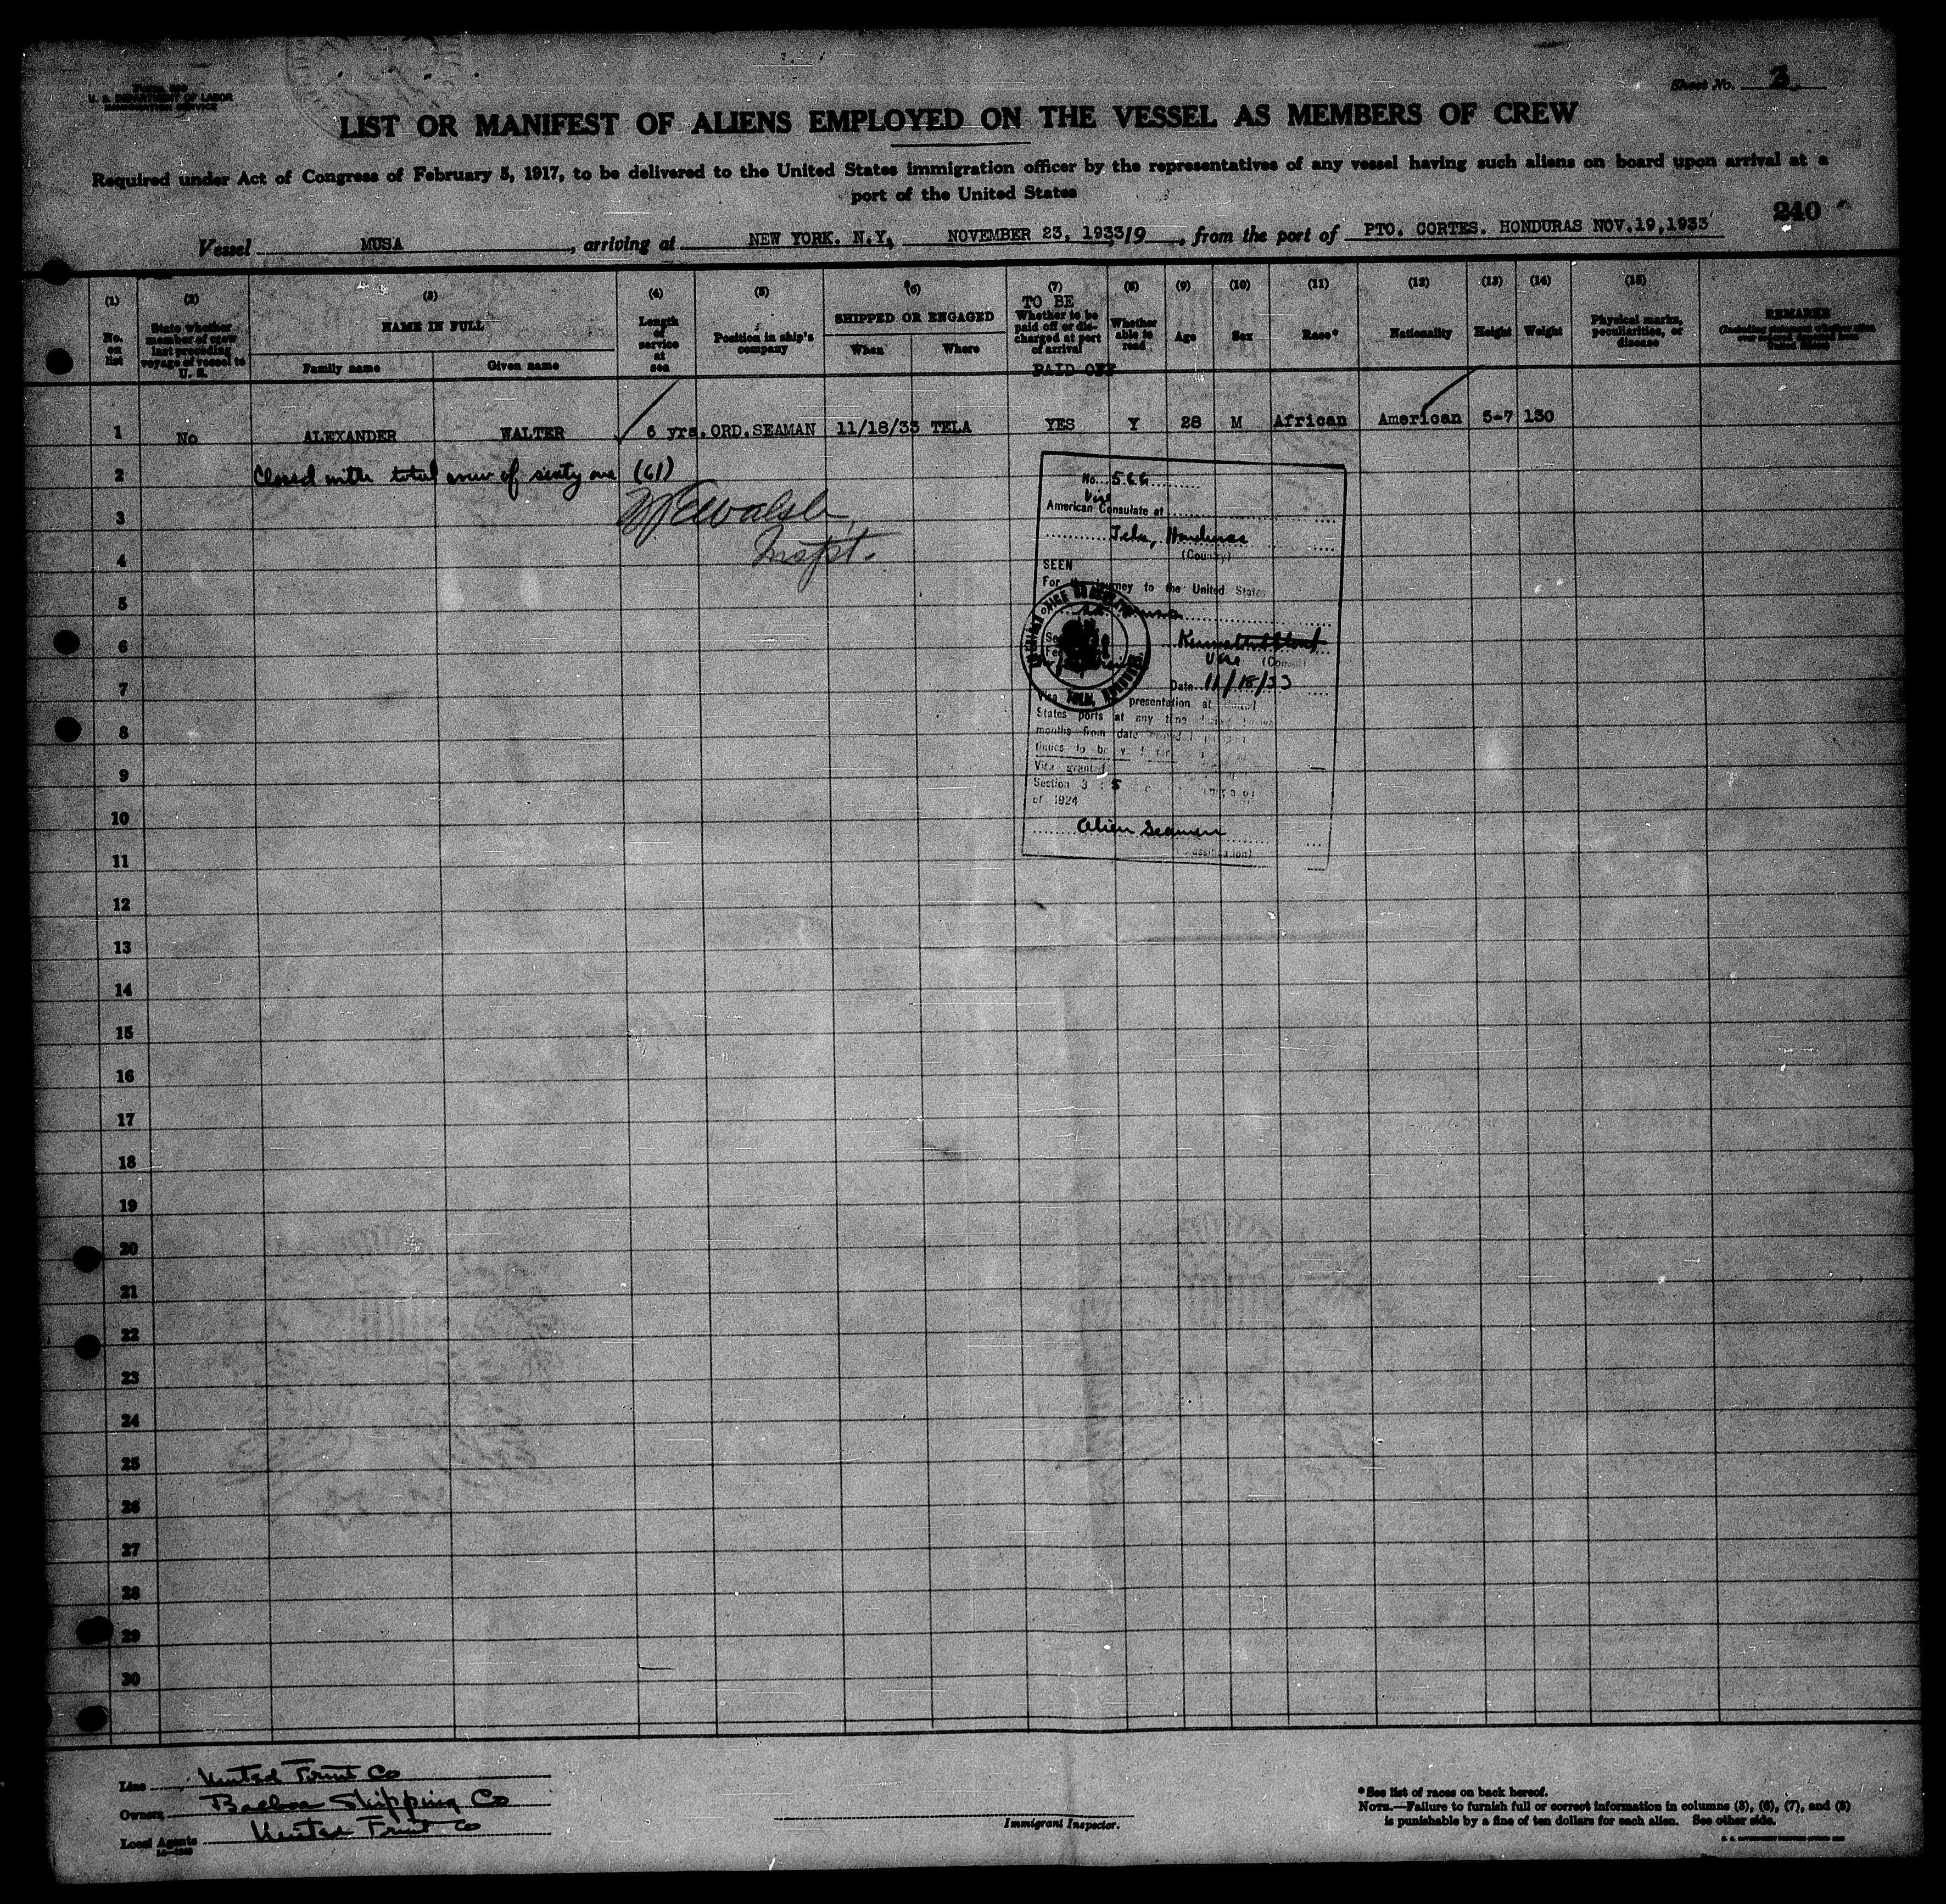 U. S. DEPARTMENT OF LABOR
IMMIGRATION SERVICE
Sheet No. 3
LIST OR MANIFEST OF ALIENS EMPLOYED ON THE VESSEL AS MEMBERS OF CREW
Required under Act of Congress of February 5, 1917, to be delivered to the United States immigration officer by the representatives of any vessel having such aliens on board upon arrival at a
port of the United States
240
Vessel MUSA, arriving at NEW YORK. N.Y. NOVEMBER 23, 1933 19, from the port of PTO. CORTES. HONDURAS NOV.19,1933
(1) (2) (3) (4) (5) (6) (7) (8) (9) (10) (11) (12) (13) (14) (15)
No. on list
State whether member of crew last preceding voyage of vessel to U. S.
NAME IN FULL
Family name
Given name
Length of service at sea
Position in ship's company
SHIPPED OR ENGAGED
When
Where
TO BE
Whether to be paid off or discharged at port of arrival
PAID OFF
Whether able to read
Age
Sex
Race*
Nationality
Height
Weight
Physical marks, peculiarities, or disease
REMARKS
1 No ALEXANDER WALTER 6 yrs. ORD.SEAMAN 11/18/33 TELA YES Y 28 M African American 5-7 130
2 Closed with total crew of sixty one (61)
3
Inspt.
4
5
6
7
8
9
10
11
12
13
14
15
16
17
18
19
20
21
22
23
24
25
26
27
28
29
30
No. 566
Vice
American Consulate at
Tela, Honduras
(Country)
SEEN
For the journey to the United States
Vice (Consul)
Date 11/18/33
presentation at
States ports at any time
months from date
Visa granted
Section 3 5
of 1924
Alien Seamen
Line United Fruit Co
Owners Balboa Shipping Co
Local Agents United Fruit Co
Immigrant Inspector.
*See list of races on back hereof.
NOTE.—Failure to furnish full or correct information in columns (3), (6), (7), and (8)
is punishable by a fine of ten dollars for each alien. See other side.